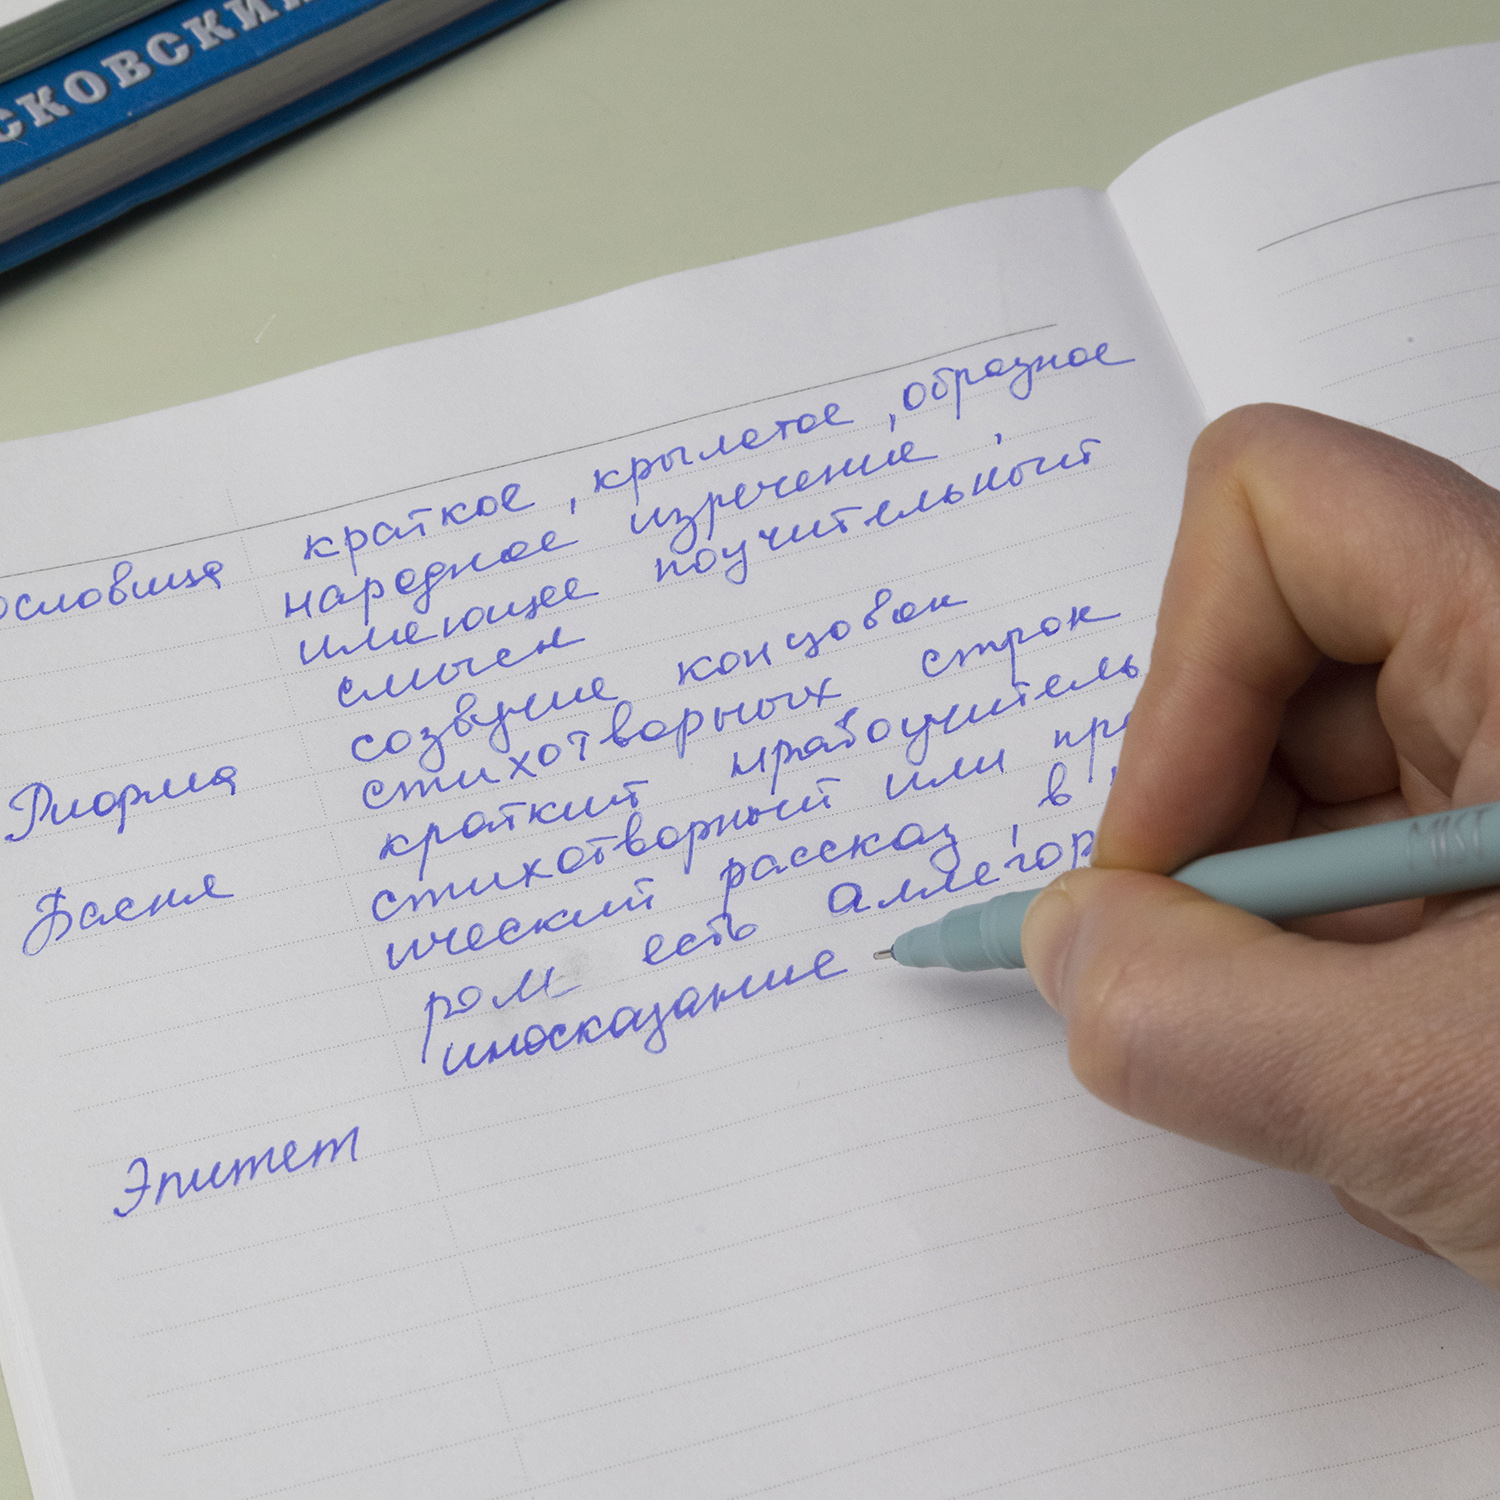 СКОВСКИ
ословица краткое, крылатое, образное
народное изречение,
имеющее поучительный
смысл
Рифма созвучие концовок
стихотворных строк
Басня краткий нравоучитель
стихотворный или про
ический рассказ, в
ром есть аллегор
иносказание
Эпитет